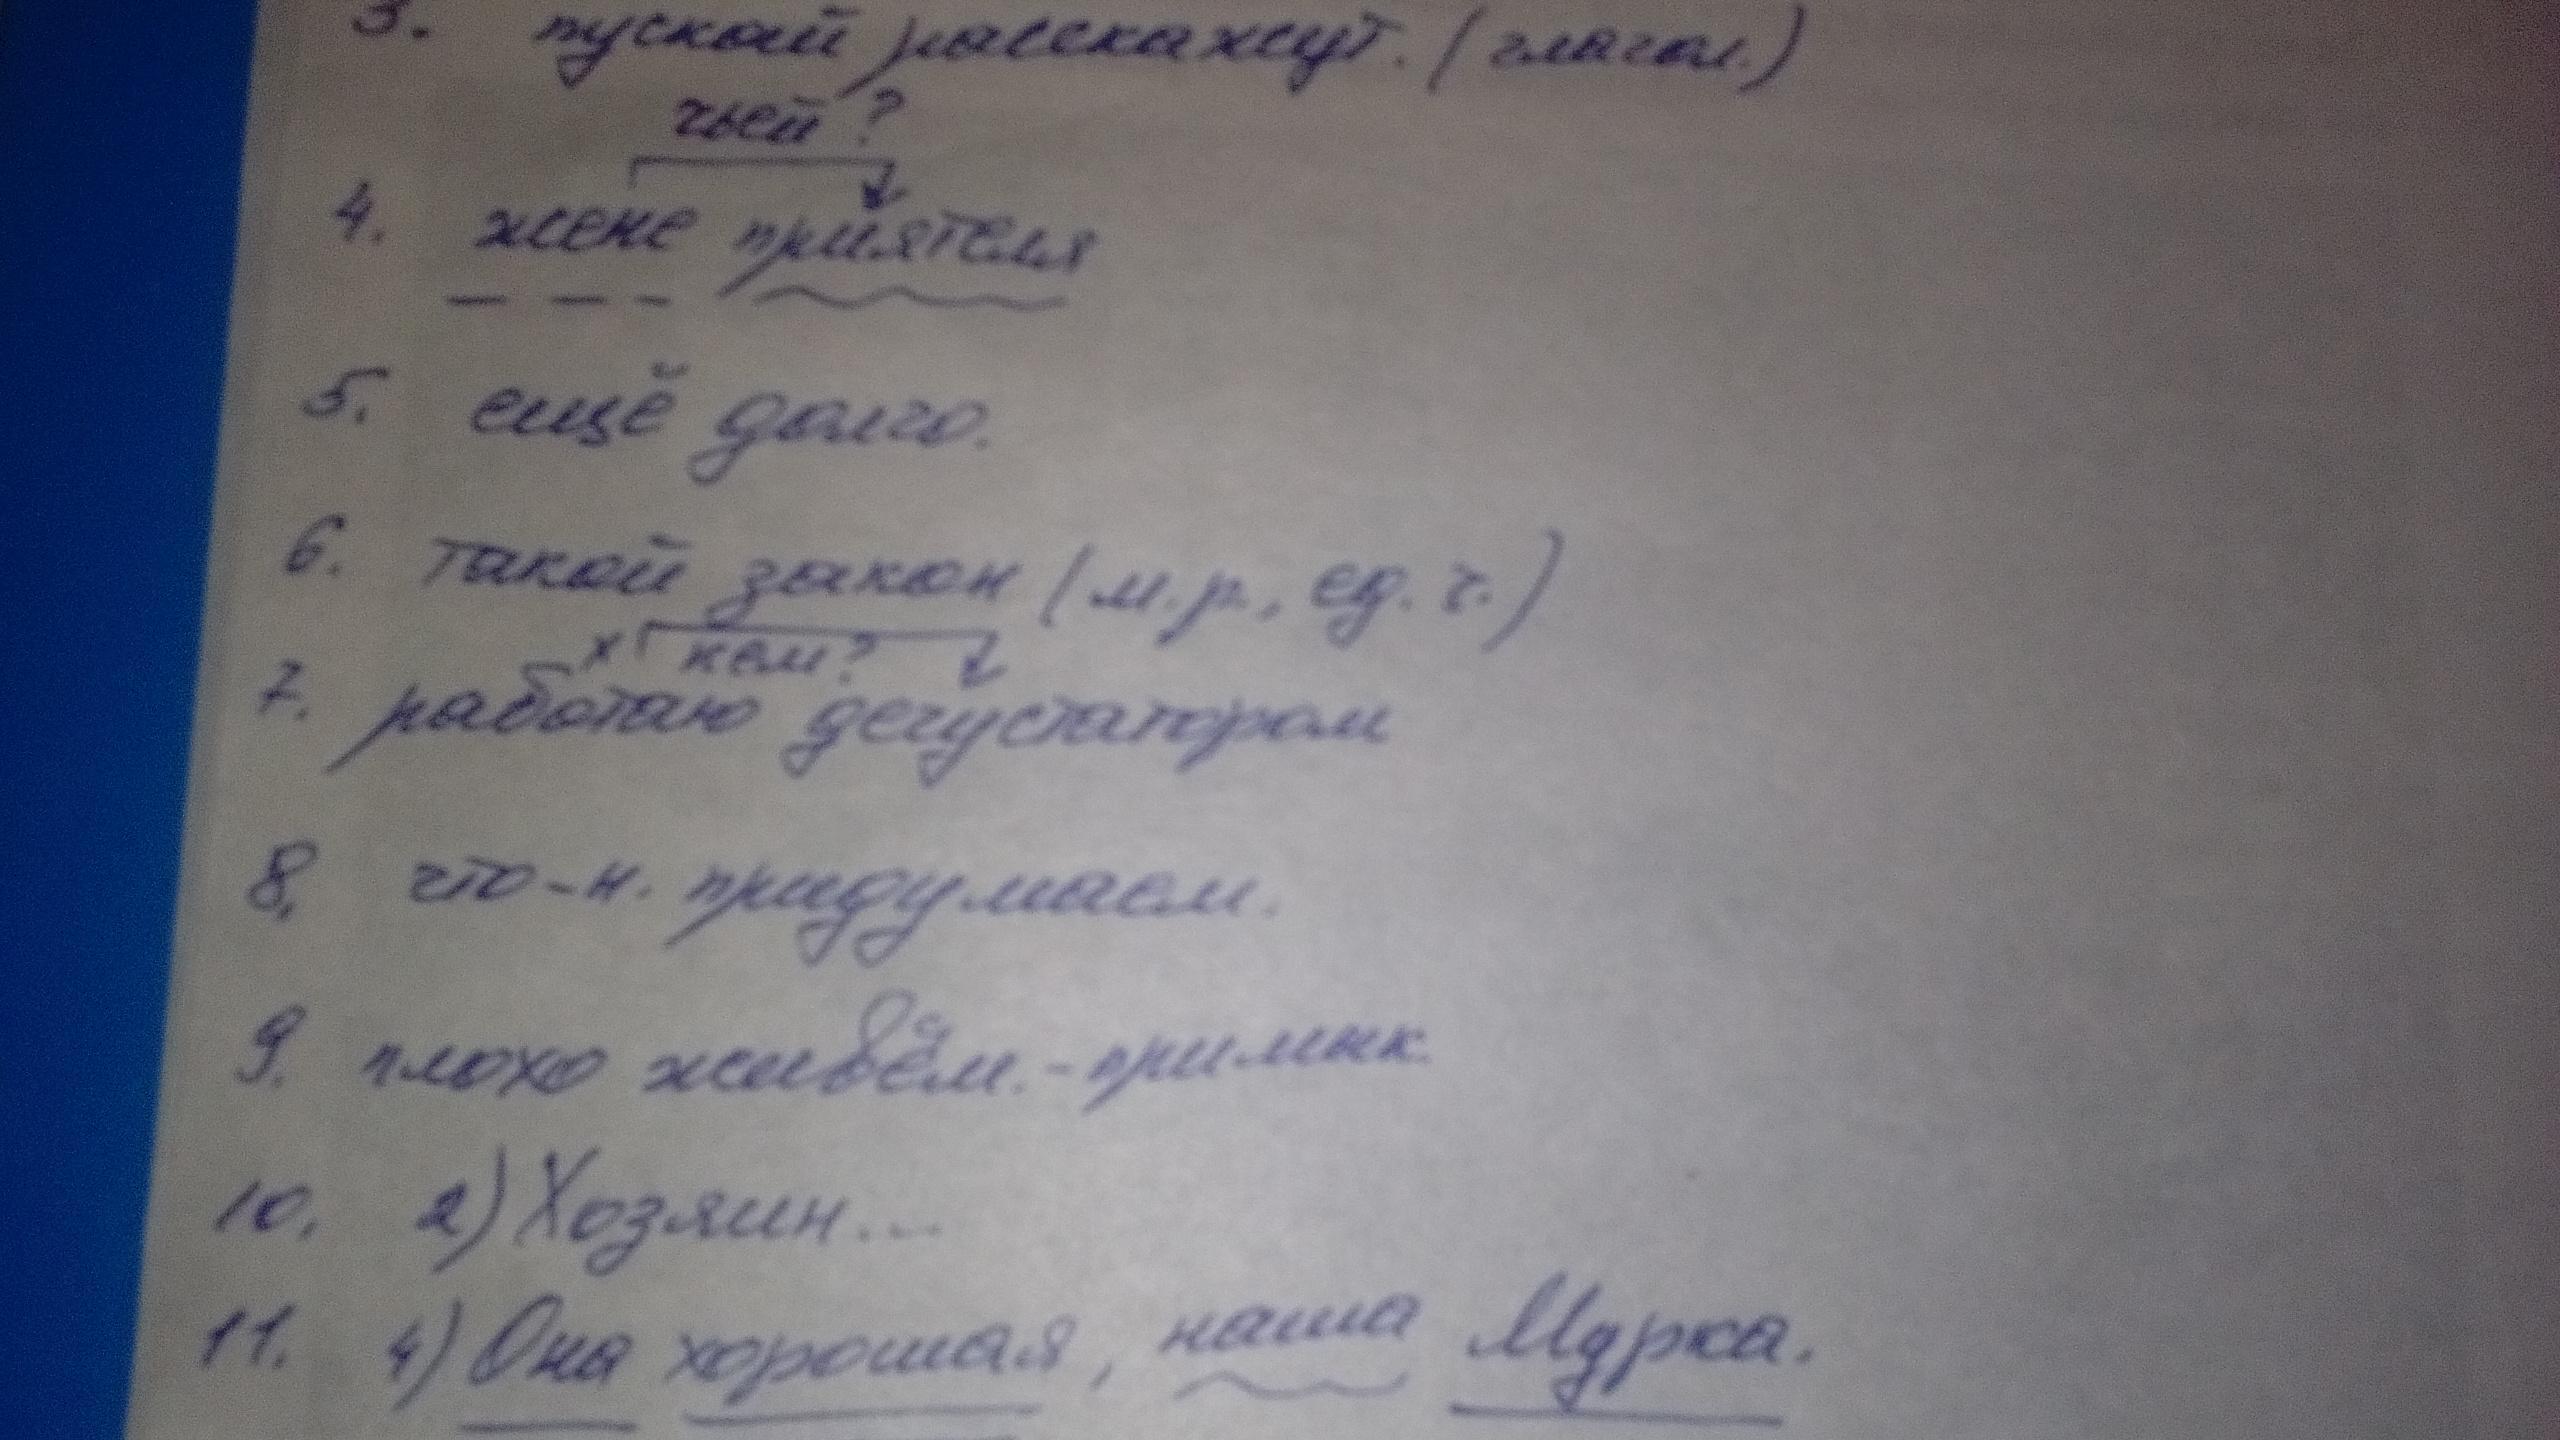 3. пускай расскажут. (глагол.)
чьей?
4. жене приятеля
5. ещё долго.
6. такой закон (м.р., ед.ч.)
х кем?
7. работаю дегустатором
8. что-н. придумаем.
9. плохо живём. - примык.
10. 2) Хозяин...
11. 4) Она хорошая, наша Мурка.